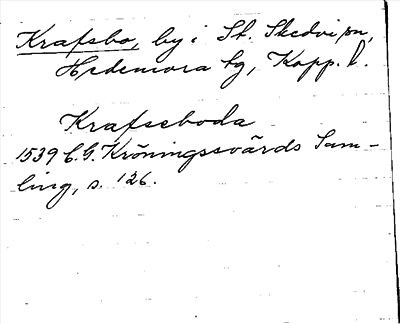 Krafsbo, by i St. Skedvi sn,
Hedemora tg, Kopp. l.
Krafseboda
1539 C.G. Kröningssvärds Sam-
ling, s. 126.